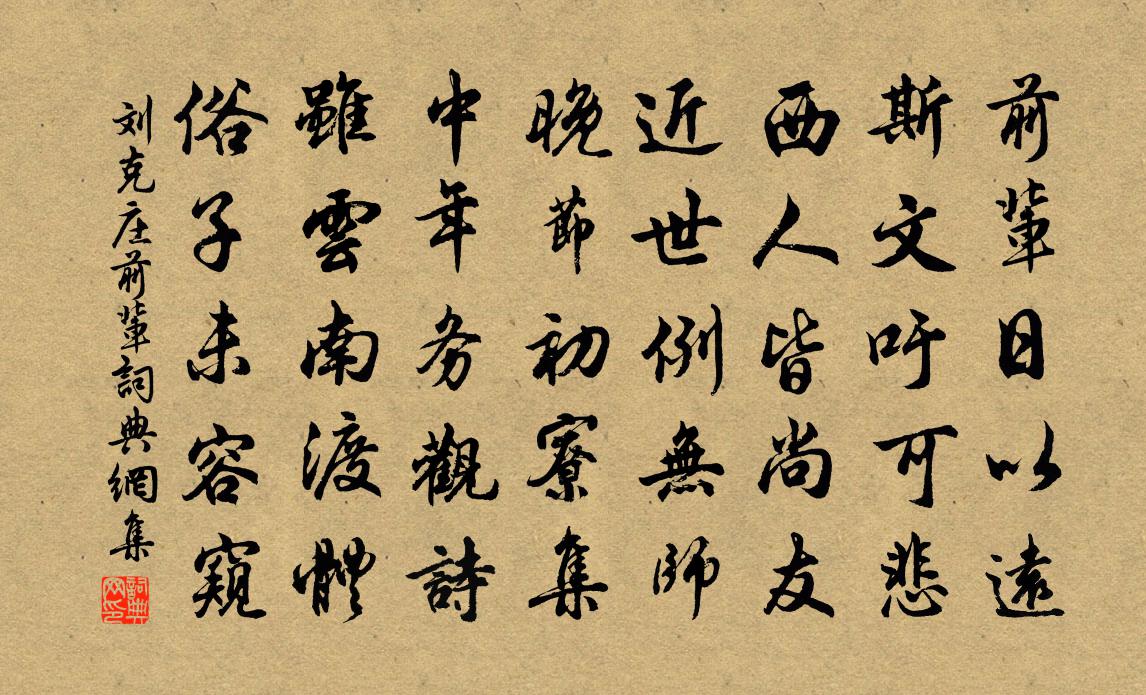 前輩日以遠
斯文吁可悲
西人皆尚友
近世例無師
晚節初寮集
中年務觀詩
雖雲南渡體
俗子未容窺
刘克庄前輩詞典網集
詞典網印